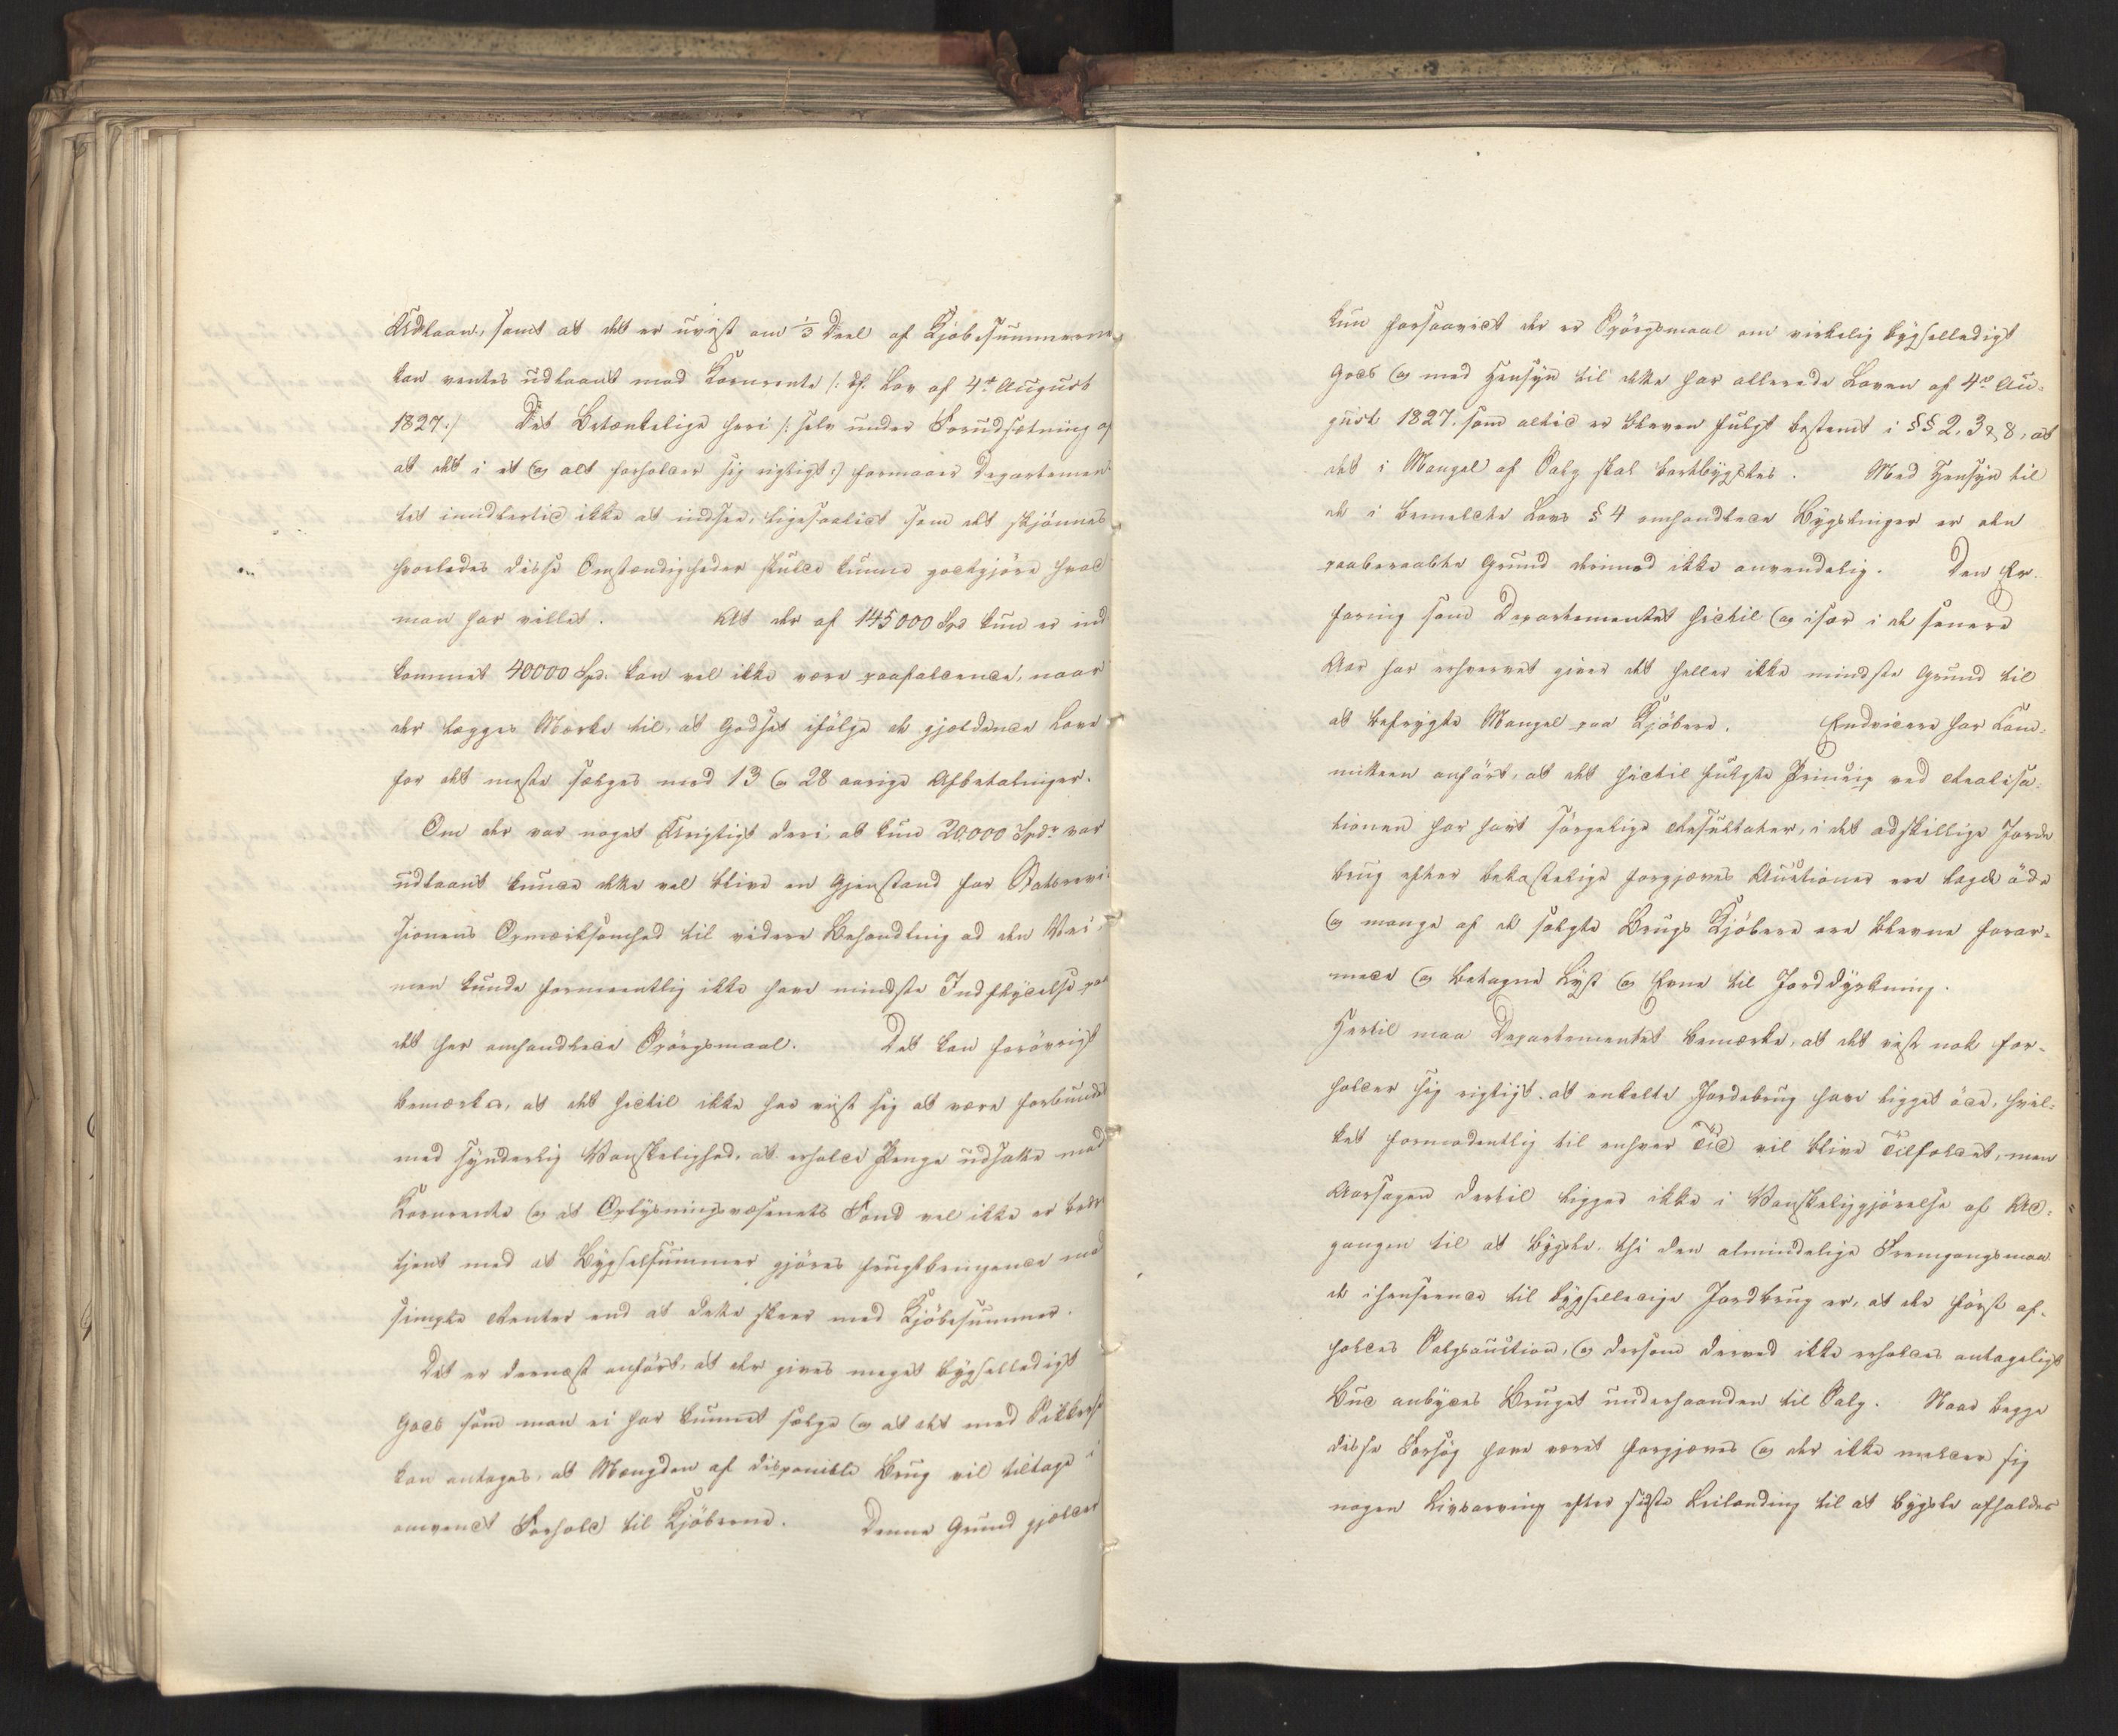 Udlaan, samt at det er uvist om 1/3 Deel af Kjøbesummerne
kan ventes udlaant mod Kornrente /: cfr. Lov af 4de August
1827 :/ Det Betænkelige heri /: selv under Forudsætning af
at det i et og alt forholder sig rigtigt :/ formaaer Departemen
tet imidlertid ikke at indsee, ligesaalidt som det skjönnes
hvorledes disse Omstændigheder skulde kunne godtgjöre hvad
man har villet. At der af 145000 Spd kun er ind
kommet 40000 Spd. kan vel ikke være paafaldende, naar
der lægges Mærke til, at Godset ifölge de gjældende Love
for det meste sælges mod 13 og 28 aarige Afbetalinger.
Om der var noget Urigtigt deri, at kun 20,000 Spdr var
udlaant kunde dette vel blive en Gjenstand for Statsrevi
sionens Opmærksomhed til videre Behandling ad den Vei,
men kunde formeentlig ikke have mindste Indflydelse paa
det her omhandlede Spörgsmaal. Det kan forövrigt
bemærkes, at det hidtil ikke har viist sig at være forbundet
med synderlig Vanskelighed, at erholde Penge udsatte mod
Kornrente og at Oplysningsvæsenets Fond vel ikke er bedre
tjent med at Bygselsummer gjöres frugtbringende mod
simple Renter end at dette skeer med Kjöbesummer.
Det er dernæst anfört, at der gives meget bygselledigt
Gods som man ei har kunnet sælge og at det med Sikkerhed
kan antages, at Mængden af disponible Brug vil tiltage i
omvendt Forhold til Kjöberne. Denne Grund gjælder
kun forsaavidt der er Spörgsmaal om virkelig bygselledigt
Gods og med Hensyn til dette har allerede Loven af 4de Au-
gust 1827. som altid er bleven fulgt bestemt i §§ 2, 3 & 8, at
det i Mangel af Salg skal bortbygsles. Med Hensyn til
de i bemeldte Lovs § 4 omhandlede Bygslinger er den
paaberaabte Grund derimod ikke anvendelig. Den Er-
faring som Departementet hidtil og især i de senere
Aar har erhvervet giver det heller ikke mindste Grund til
at befrygte Mangel paa Kjöbere. Endvidere har Com-
mitteen anfört, at det hidtil fulgte Princip ved Realisa-
tionen har havt sörgelige Resultater, i det adskillige Jorde
brug efter bekostelige forgjæves Auctioner ere lagde öde
og mange af de solgte Brugs Kjöbere ere blevne forar-
mede og betagne Lyst og Evne til Jorddyrkning.
Hertil maa Departementet bemærke, at det vistnok for-
holder sig rigtigt, at enkelte Jordebrug have ligget öde, hvil-
ket formodentlig til enhver Tid vil blive Tilfældet, men
Aarsagen dertil ligger ikke i Vanskeliggjörelse af Ad-
gangen til at bygsle, thi den almindelige Fremgangsmaa
de i henseende til bygselledige Jordbrug er, at der först af-
holdes Salgsauction, og dersom derved ikke erholdes antageligt
Bud anbydes Bruget underhaanden til Salg. Naar begge
disse Forsög have været forgjæves og der ikke melder sig
nogen Livsarving efter sidste Leilænding til at bygsle afholdes